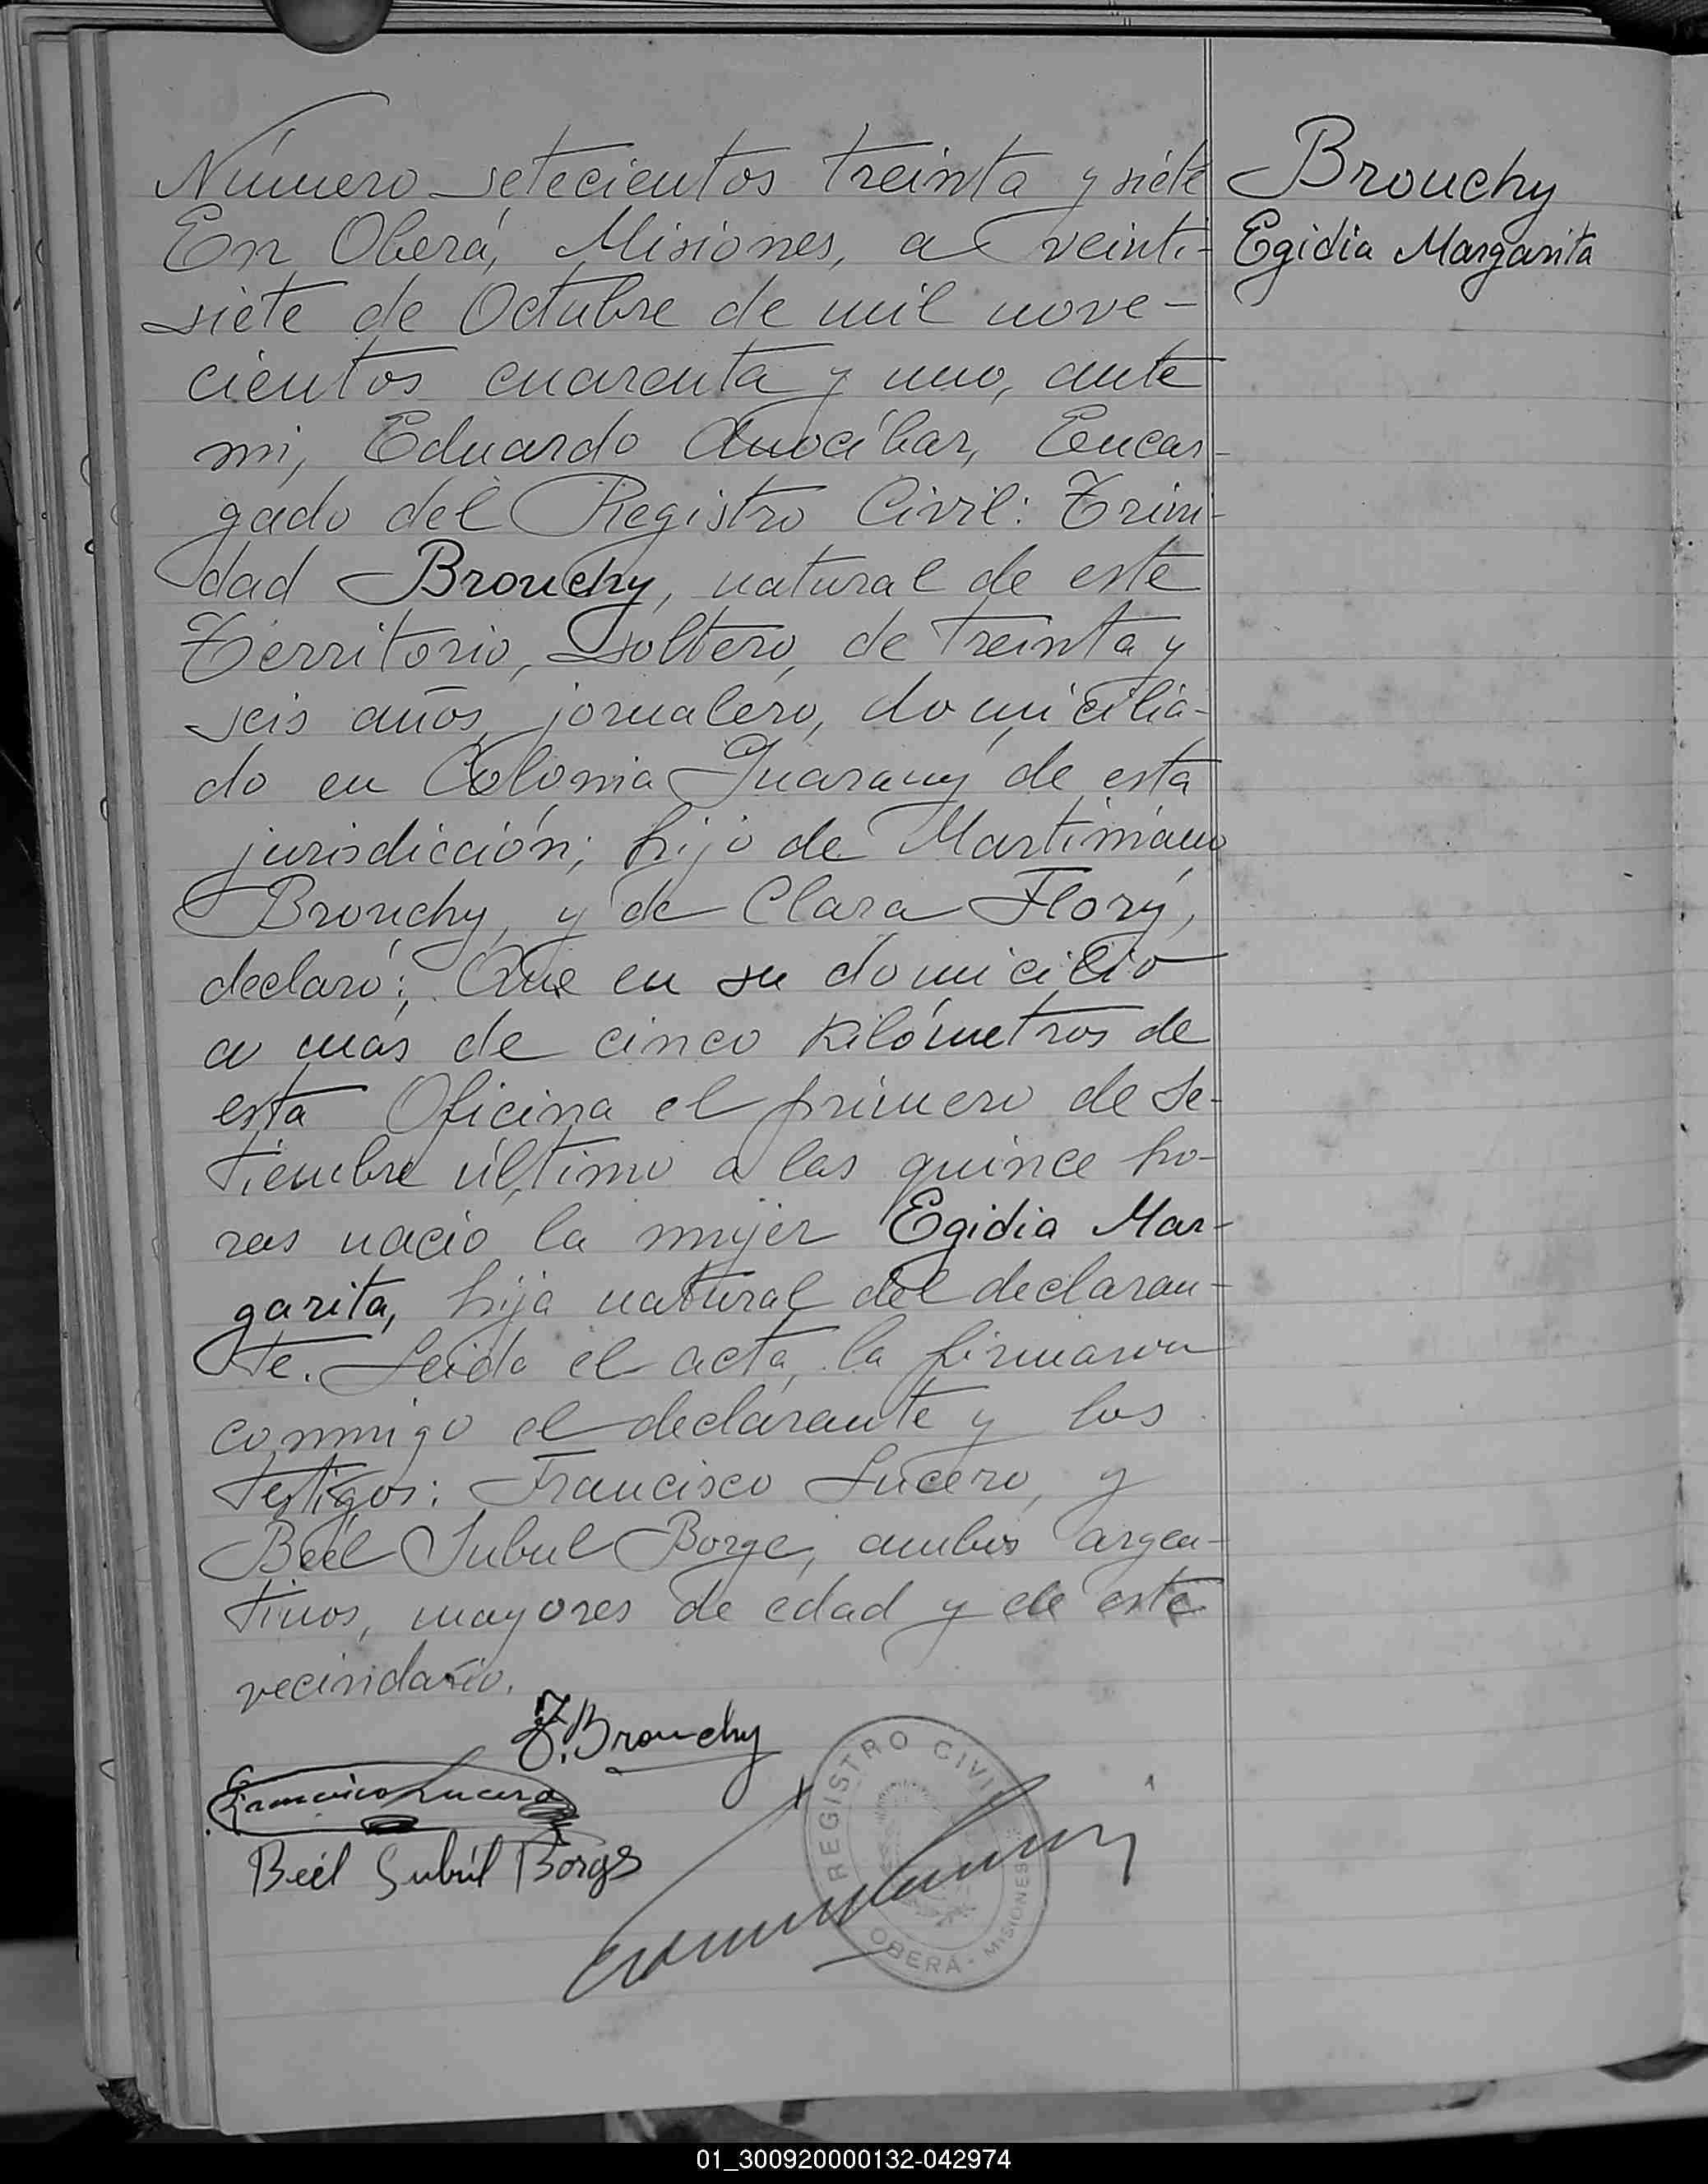 Número setecientos treinta y siete
En Oberá, Misiones, a veinti-
siete de Octubre de mil nove-
cientos cuarenta y uno, ante
mi, Eduardo Anocíbar, Encar-
gado del Registro Civil: Trini-
dad Brouchy, natural de este
Territorio, soltero, de treinta y
seis años, jornalero, domicilia-
do en Colonia Guarany de esta
jurisdicción; hijo de Martiniano
Brouchy, y de Clara Flory,
declaró: Que en su domicilio
a más de cinco kilómetros de
esta Oficina el primero de Se-
tiembre último a las quince ho-
ras nació la mujer Egidia Mar-
garita, hija natural del declaran-
te. Leida el acta, la firmaron
conmigo el declarante y los
testigos: Francisco Lucero, y
Beél Subul Borge, ambos argen-
tinos, mayores de edad y de este
vecindario.
Brouchy
Egidia Margarita
T. Brouchy
Francisco Lucero
Beél Subúl Borge
REGISTRO CIVIL
OBERÁ - MISIONES
01_300920000132-042974